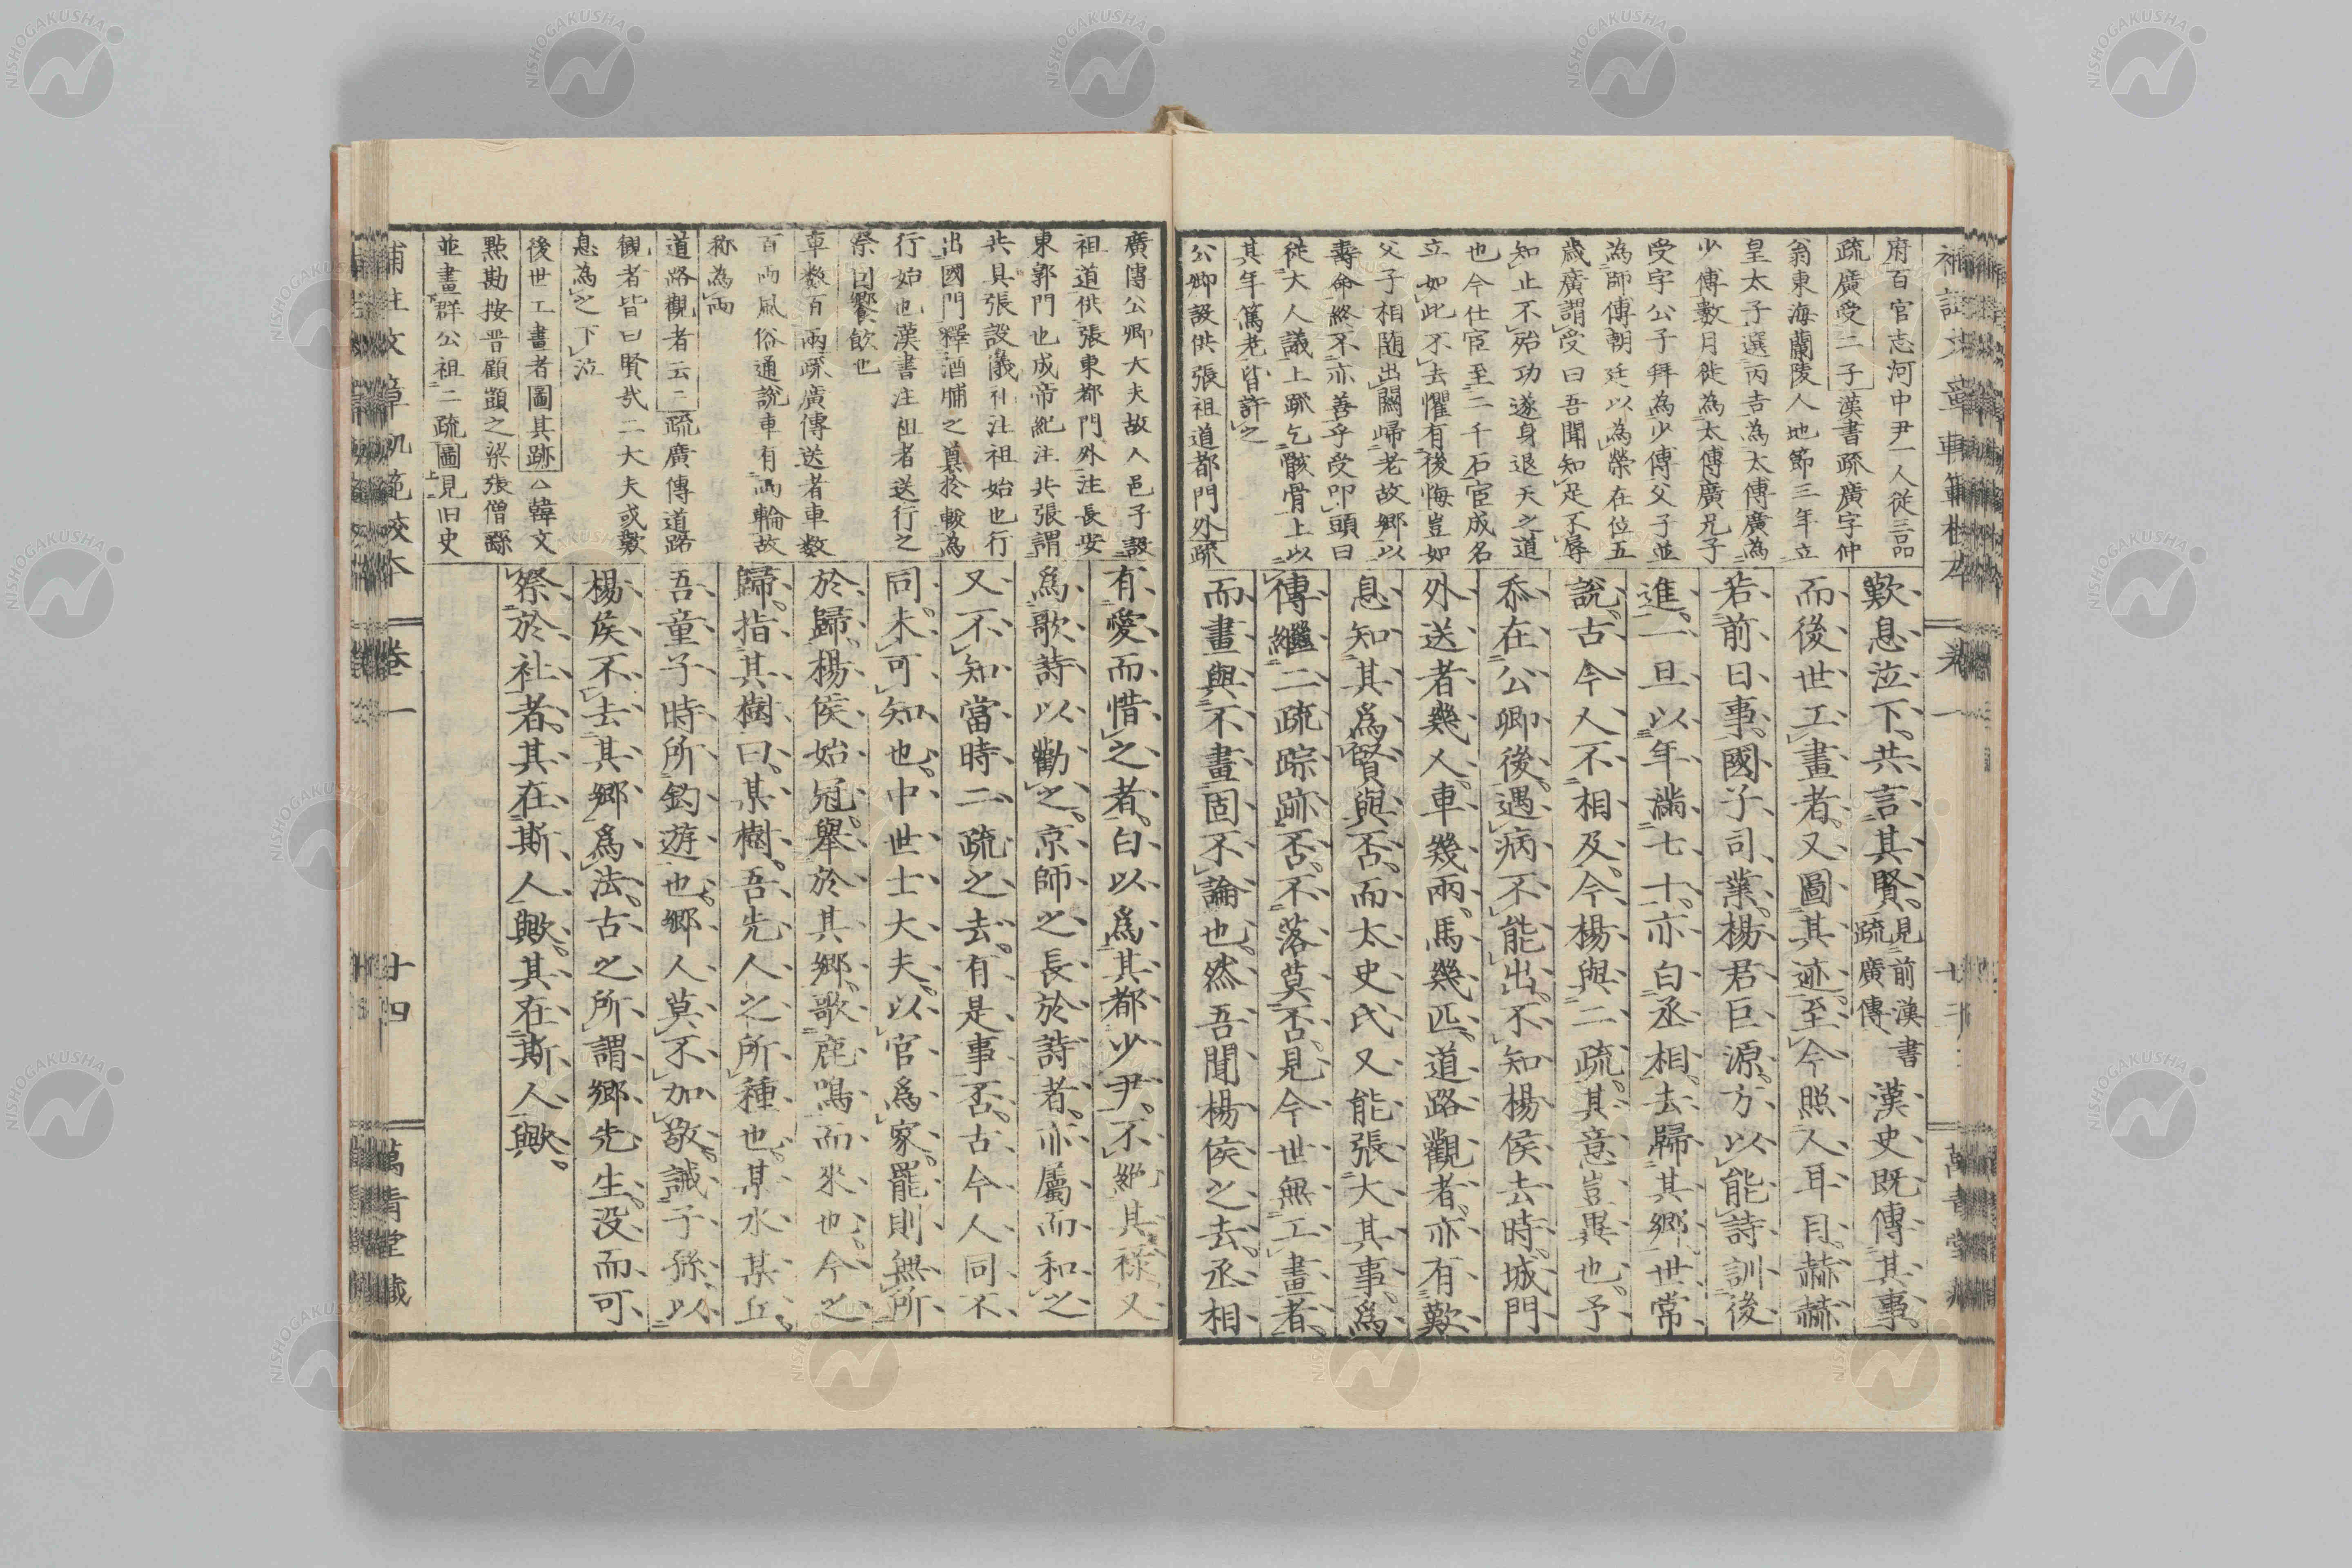 府百官志河中尹一人從三品
疏廣受二子漢書疏廣字仲
翁東海蘭陵人地節三年立
皇太子選丙吉為太傅廣為
少傅數月徙為太傅廣兄子
受字公子拜為少傅父子並
為師傅朝廷以為榮在位五
歲廣謂受曰吾聞知足不辱
知止不殆功遂身退天之道
也今仕宦至二千石宦成名
立如此不去懼有後悔豈如
父子相随出關歸老故鄉以
壽命終不亦善乎受叩頭曰
從大人議上疏乞骸骨上以
其年篤老皆許之
公卿設供張祖道都門外疏
歎息泣下共言其賢見前漢書疏廣傳漢史既傳其事
而後世工畫者又圖其迹至今照人耳目赫赫
若前日事國子司業楊君巨源方以能詩訓後
進一旦以年滿七十亦白丞相去歸其鄉世常
說古今人不相及今楊與二疏其意豈異也予
忝在公卿後遇病不能出不知楊侯去時城門
外送者幾人車幾兩馬幾匹道路觀者亦有歎
息知其爲賢與否而太史氏又能張大其事爲
傳繼二疏踪跡否不落莫否見今世無工畫者
而畫與不畫固不論也然吾聞楊侯之去丞相
廣傳公卿大夫故人邑子設
祖道供張東都門外注長安
東郭門也成帝紀注共張謂
共具張設儀礼注祖始也行
出國門釋酒脯之奠於軷為
行始也漢書注祖者送行之
祭因饗飲也
車数百兩疏廣傳送者車数
百兩風俗通說車有兩輪故
称為兩
道路觀者云二疏廣傳道路
観者皆曰賢哉二大夫或歎
息為之下泣
後世工畫者圖其跡△韓文
點勘按晋顧顗之梁張僧繇
並畫群公祖二疏圖見旧史
有愛而惜之者白以爲其都少尹不絶其祿又
爲歌詩以勸之京師之長於詩者亦屬而和之
又不知當時二疏之去有是事否古今人同不
同未可知也中世士大夫以官爲家罷則無所
於歸楊侯始冠舉於其鄉歌鹿鳴而來也今之
歸指其樹曰某樹吾先人之所種也某水某丘
吾童子時所釣遊也鄉人莫不加敬誡子孫以
楊侯不去其鄉爲法古之所謂鄉先生没而可
祭於社者其在斯人歟其在斯人歟
卷一
廿四
萬青堂藏